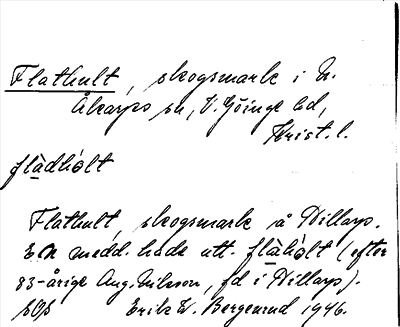 Flathult, skogsmark i N.
Åkarps sn, V. Göinge hd,
Krist. l.
flàdhólt
Flathult, skogsmark å Dillarp.
EN medd. hade utt. flàhólt (efter
83-årige Aug. Nilsson, fd i Dillarp).
Erik W. Bergenrud 1946.